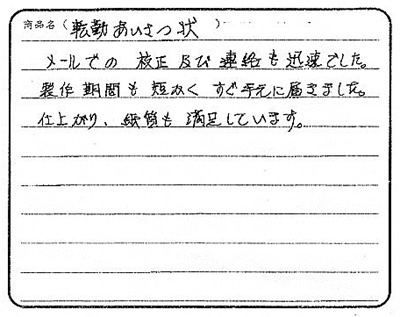 商品名(転勤あいさつ状)
メールでの 校正 及び 連絡も 迅速でした。
製作期間も 短かく すぐ手元に届きました。
仕上がり、紙質も 満足しています。